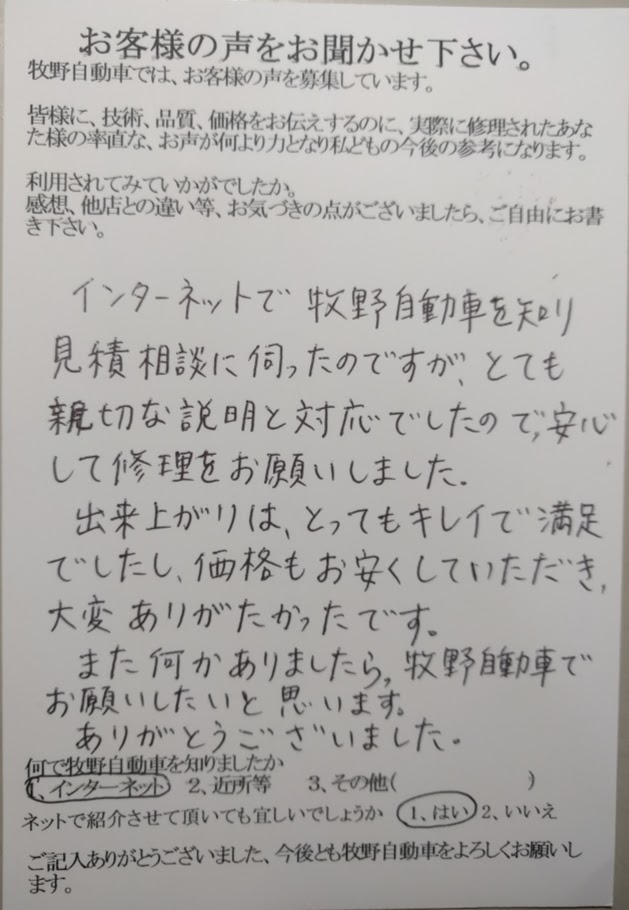 お客様の声をお聞かせ下さい。
牧野自動車では、お客様の声を募集しています。
皆様に、技術、品質、価格をお伝えするのに、実際に修理されたあな
た様の率直な、お声が何より力となり私どもの今後の参考になります。
利用されてみていかがでしたか。
感想、他店との違い等、お気づきの点がございましたら、ご自由にお書
き下さい。
インターネットで牧野自動車を知り
見積相談に伺ったのですが、とても
親切な説明と対応でしたので、安心
して修理をお願いしました。
出来上がりは、とってもキレイで満足
でしたし、価格もお安くしていただき、
大変ありがたかったです。
また何かありましたら、牧野自動車で
お願いしたいと思います。
ありがとうございました。
何で牧野自動車を知りましたか
1、インターネット 2、近所等 3、その他( )
ネットで紹介させて頂いても宜しいでしょうか 1、はい 2、いいえ
ご記入ありがとうございました、今後とも牧野自動車をよろしくお願いし
ます。